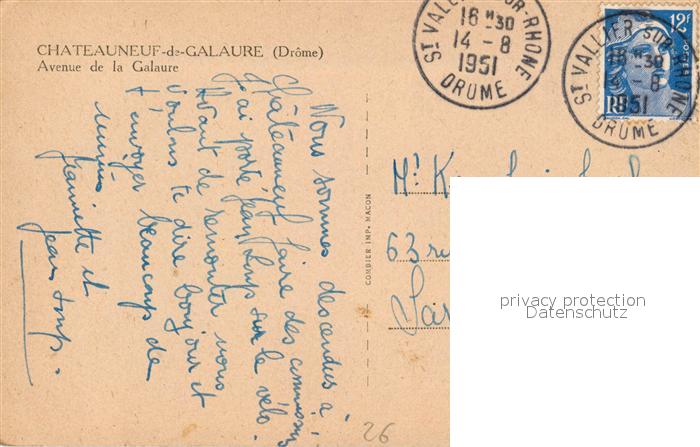 CHATEAUNEUF-de-GALAURE (Drôme)
Avenue de la Galaure
ST VALLIER-SUR-RHONE
16 H30
14 - 8
1951
DROME
12F
ST VALLIER-SUR-RHONE
16 H30
14 - 8
1951
DROME
RF
Nous sommes descendus à
Châteauneuf faire des commissions
J'ai porté Jean Loup sur le vélo.
Avant de remonter nous
voulons te dire bonjour et
t'envoyer beaucoup de
mimis
Jeannette et
Jean Loup.
COMBIER IMP. MACON
Mr
63 rue
26
privacy protection
Datenschutz